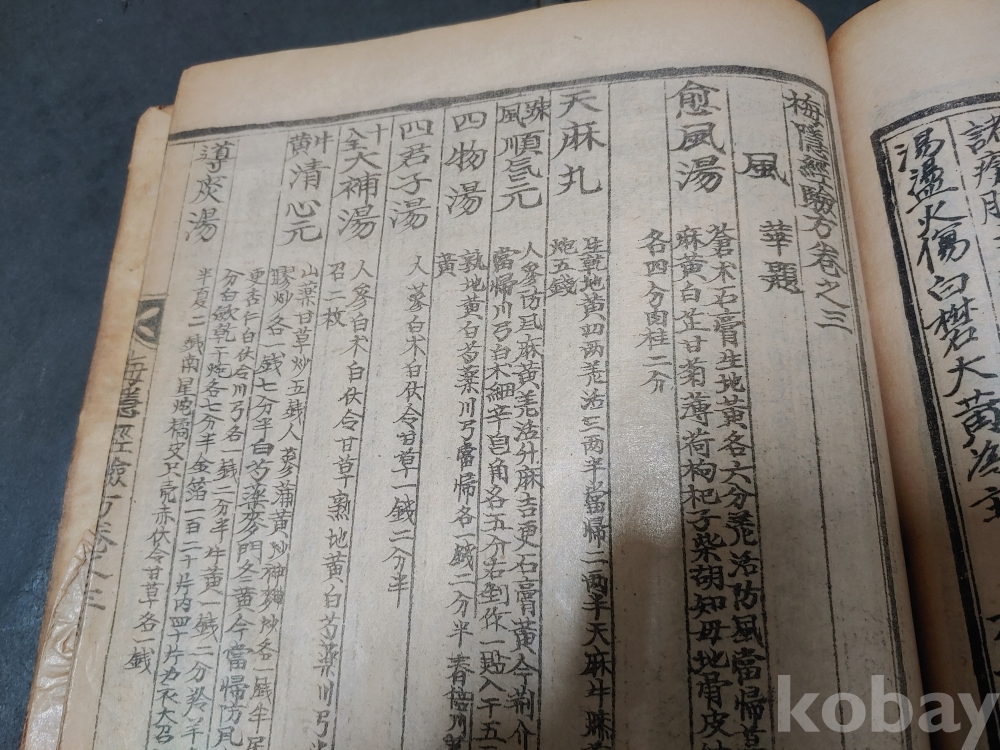 諸
湯盪火傷白礬大黃
梅隱經驗方卷之三
風 華題
愈風湯
蒼朮石膏生地黃各六分羌活防風當歸
麻黃白芷甘菊薄荷枸杞子柴胡知母地骨皮
各四分肉桂二分
天麻丸
生乾地黃四两羌活三两半當歸二两半天麻牛膝
炮五錢
疎風順氣元
人參防風麻黃羌活升麻吉更石膏黃今荆介
當歸川弓白朮細辛皂角各五分右剉作一貼入干五
四物湯
熟地黃白芍藥川弓當歸各一錢二分半春倍川
四君子湯
人蔘白朮白伏令甘草一錢二分半
十全大補湯
人參白朮白伏令甘草熟地黃白芍藥川弓
召二枚
牛黃清心元
山藥甘草炒五錢人蔘蒲黃炒神
膠炒各一錢七分半白芍藥麥門冬黃今當歸防風
更杏仁白伏令川弓各一錢二分半牛黃一錢二分羚羊
分白斂乾干炮各七分半金箔一百二十片內四十片為衣大召
導痰湯
半夏二錢南星炮橘
赤伏令甘草各一錢
梅隱經驗方卷之三
kobay